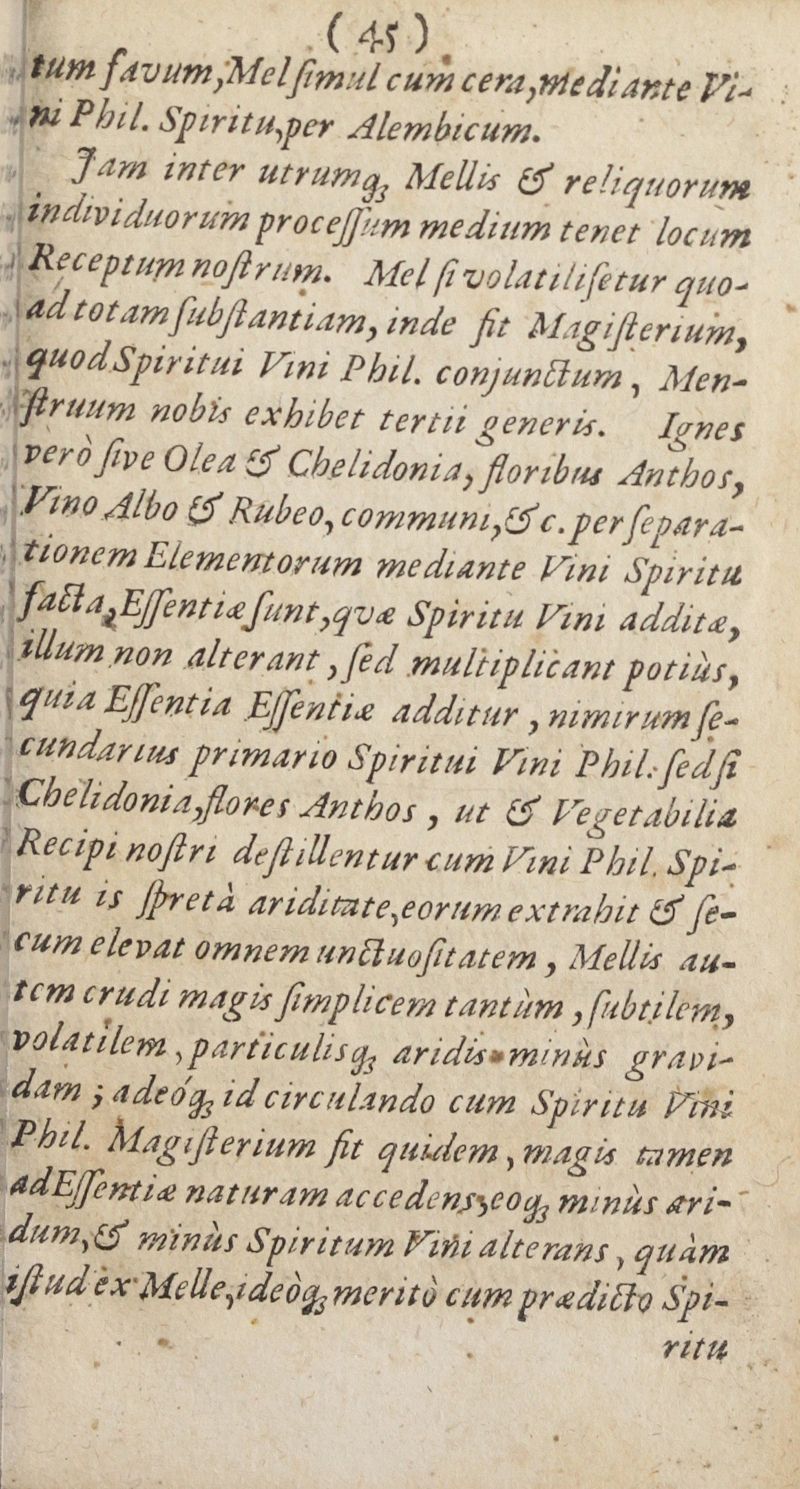 (45)
tum favum, Mel ſimul cum cera, mediante Vi-
ni Phil. Spiritu, per Alembicum.
Jam inter utrumq; Mellis & reliquorum
individuorum proceſſum medium tenet locum
Receptum noſtrum. Mel ſi volatiliſetur quo-
ad totam ſubſtantiam, inde fit Magiſterium,
quod Spiritui Vini Phil. conjunctum, Men-
ſtruum nobis exhibet tertii generis. Ignes
verò ſive Olea & Chelidonia, floribus Anthos,
Vino Albo & Rubeo, communi, &c. per ſepara-
tionem Elementorum mediante Vini Spiritu
facta, Eſſentiæ ſunt, qvæ Spiritu Vini additæ,
illum non alterant, ſed multiplicant potiùs,
quia Eſſentia Eſſentiæ additur, nimirum ſe-
cundarius primario Spiritui Vini Phil. ſed ſi
Chelidonia, flores Anthos, ut & Vegetabilia
Recipi noſtri deſtillentur cum Vini Phil. Spi-
ritu is ſpretà ariditate, eorum extrahit & ſe-
cum elevat omnem unctuoſitatem, Mellis au-
tem crudi magis ſimplicem tantùm, ſubtilem,
volatilem, particulisq; aridis minùs gravi-
dam; adeóq; id circulando cum Spiritu Vini
Phil. Magiſterium fit quidem, magis tamen
ad Eſſentiæ naturam accedens, eoq; minùs ari-
dum, & minùs Spiritum Vini alterans, quàm
iſtud ex Melle, ideòq; meritò cum prædicto Spi-
ritu